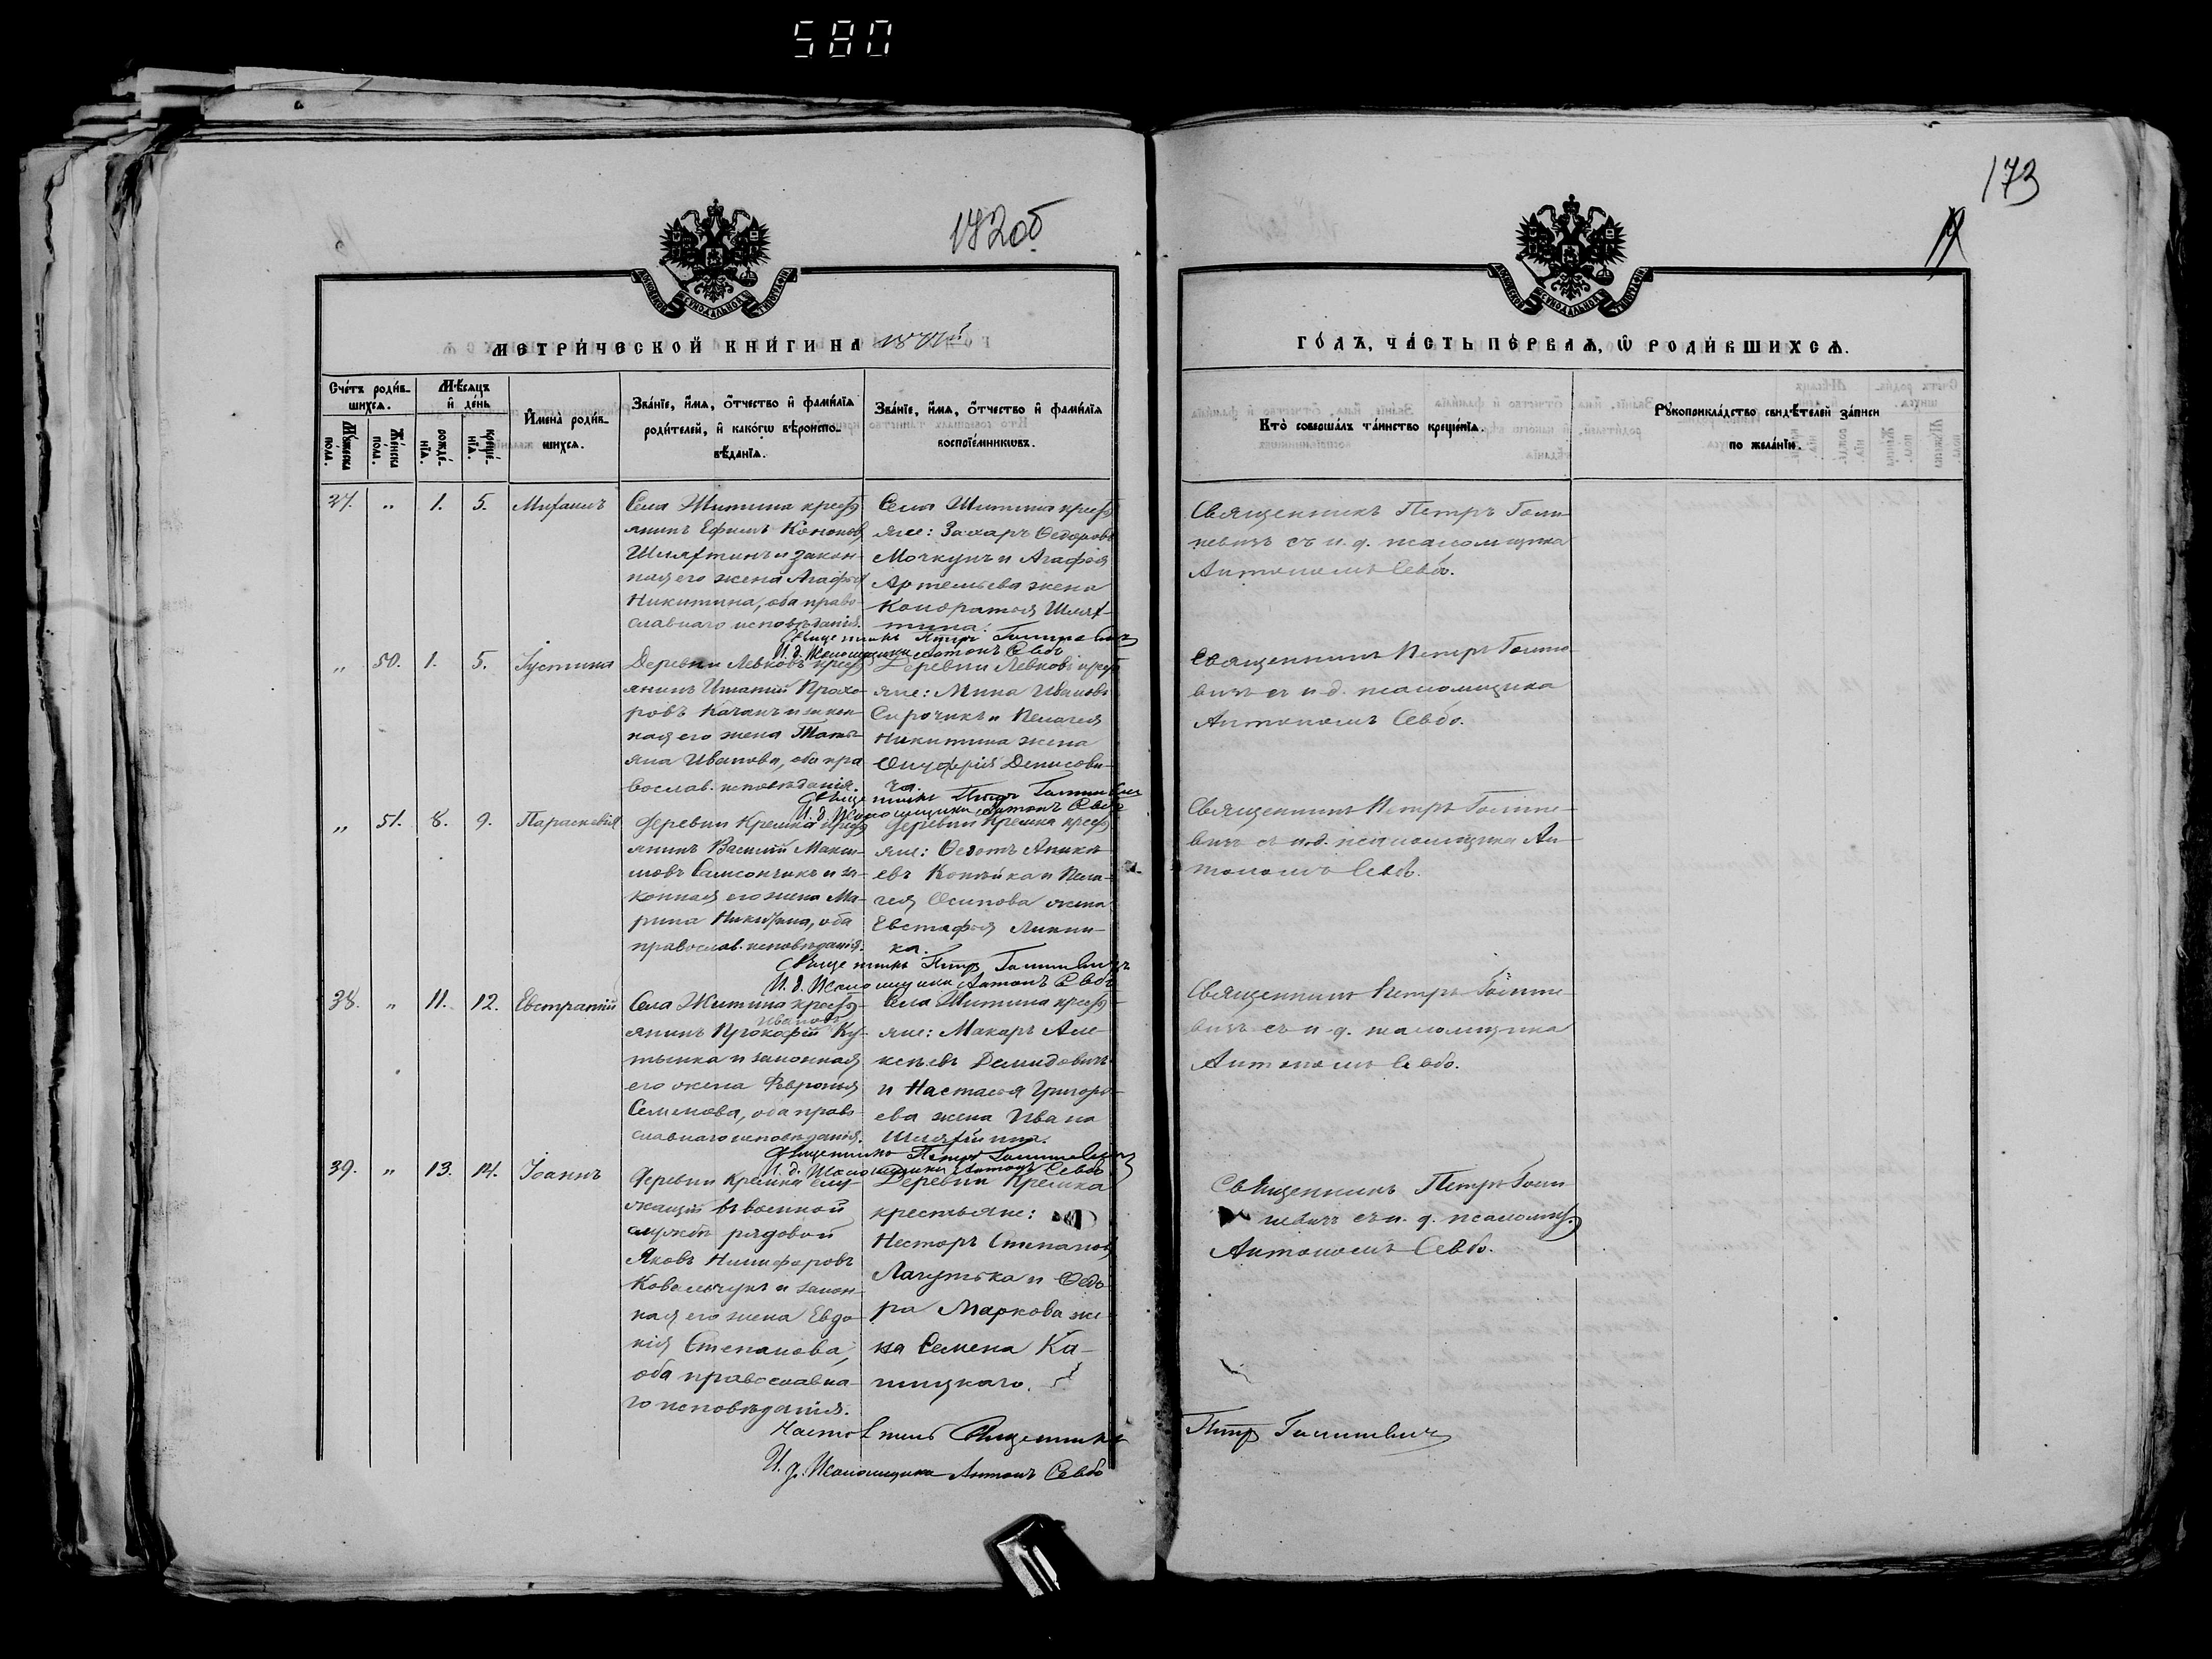 580
182об
173
МЕТРИ́ЧЕСКОЙ КНИ́ГИ НА
ГО́ДЪ, ЧА́СТЬ ПЕ́РВАѦ, Ѡ҆ РОДИ́ВШИХСѦ.
Сче́тъ роди́в-
шихсѧ.
Мꙋ́жеска пола.
Же́нска пола.
Мѣ́сѧцъ
и҆ де́нь
рожде́-
нїѧ.
креще́-
нїѧ.
И҆мена̀ роди́в-
шихсѧ.
Зва́нїе, и҆́мѧ, ѻ҆́тчество и҆ фами́лїѧ
роди́телей, и҆ како́гѡ вѣроиспо-
вѣ́данїѧ.
Зва́нїе, и҆́мѧ, ѻ҆́тчество и҆ фами́лїѧ
воспрїе́мникѡвъ.
Кто̀ соверша́лъ та́инство креще́нїѧ.
Рꙋкоприкла́дство свидѣ́телей за́писи
по жела́нїю.
„ 1. 5. Михаилъ
Села Житина крест-
янинъ Ефимъ Кононов
Шляхтинъ и закон-
ная его жена Агафья
Никитина, оба право-
славнаго исповѣданія.
Села Житина крест-
яне: Захаръ Ѳедоровъ
Мочкунъ и Агафья
Артемьева жена
Кондратія Шлях-
тина.
Священникъ Петръ
И. д. Псаломщика Антонъ Севбо
Священникъ Петръ
съ и. д. псаломщика
Антономъ Севбо.
„ 50. 1. 5. Іустина
Деревни Левковъ крест-
янинъ Игнатій Прохо-
ровъ Качанъ и закон-
ная его жена Тать
яна Иванова, оба пра
вослав. исповѣданія.
Деревни Левковъ крест
яне: Мина Ивановъ
Сирочикъ и Пелагея
Никитина жена
Онуфрія Денисови-
ча.
Священникъ Петръ
И. д. Псаломщика Антонъ Севбо
Священникъ Петръ
съ и. д. псаломщика
Антономъ Севбо.
„ 51. 8. 9. Параскевія
Деревни Кремка крест-
янинъ Василій Макси-
мовъ Самсончикъ и за-
конная его жена Ма-
рина Никитина, оба
православ. исповѣданія.
Деревни Кремка крест-
яне: Ѳеготъ Аники-
евъ Копѣйка и Пела-
гея Осипова жена
Евстафья
ка.
Священникъ Петръ
И. д. Псаломщика Антонъ Севбо
Священникъ Петръ
съ и. д. псаломщика Ан-
тономъ Севбо.
38. „ 11. 12. Евстратій
Села Житина крест-
Ивановъ
янинъ Прокофій Ку-
тышка и законная
его жена Февронья
Семенова, оба право-
славнаго исповѣданія.
Села Житина крест-
яне: Макаръ Але-
ксѣевъ Демидовичъ
и Настасья Григорь-
ева жена Ивана
Шляхтина.
Священникъ Петръ
И. д. Псаломщика Антонъ Севбо
Священникъ Петръ
съ и. д. псаломщика
Антономъ Севбо.
39. „ 13. 14. Іоаннъ
Деревни Кремка слу-
жащій въ военной
службѣ рядовой
Яковъ Никифоровъ
Ковальчукъ и закон-
ная его жена Евдо-
кія Степанова,
оба православна-
го исповѣданія.
Деревни Кремка
крестьяне:
Несторъ Степановъ
Лагутька и Ѳедо-
ра Маркова же-
на Семена Ка-
пицкаго.
Священникъ Петръ
съ и. д. псаломщ.
Антономъ Севбо.
Настоятель Священникъ Петръ
И. д. Псаломщика Антонъ Севбо